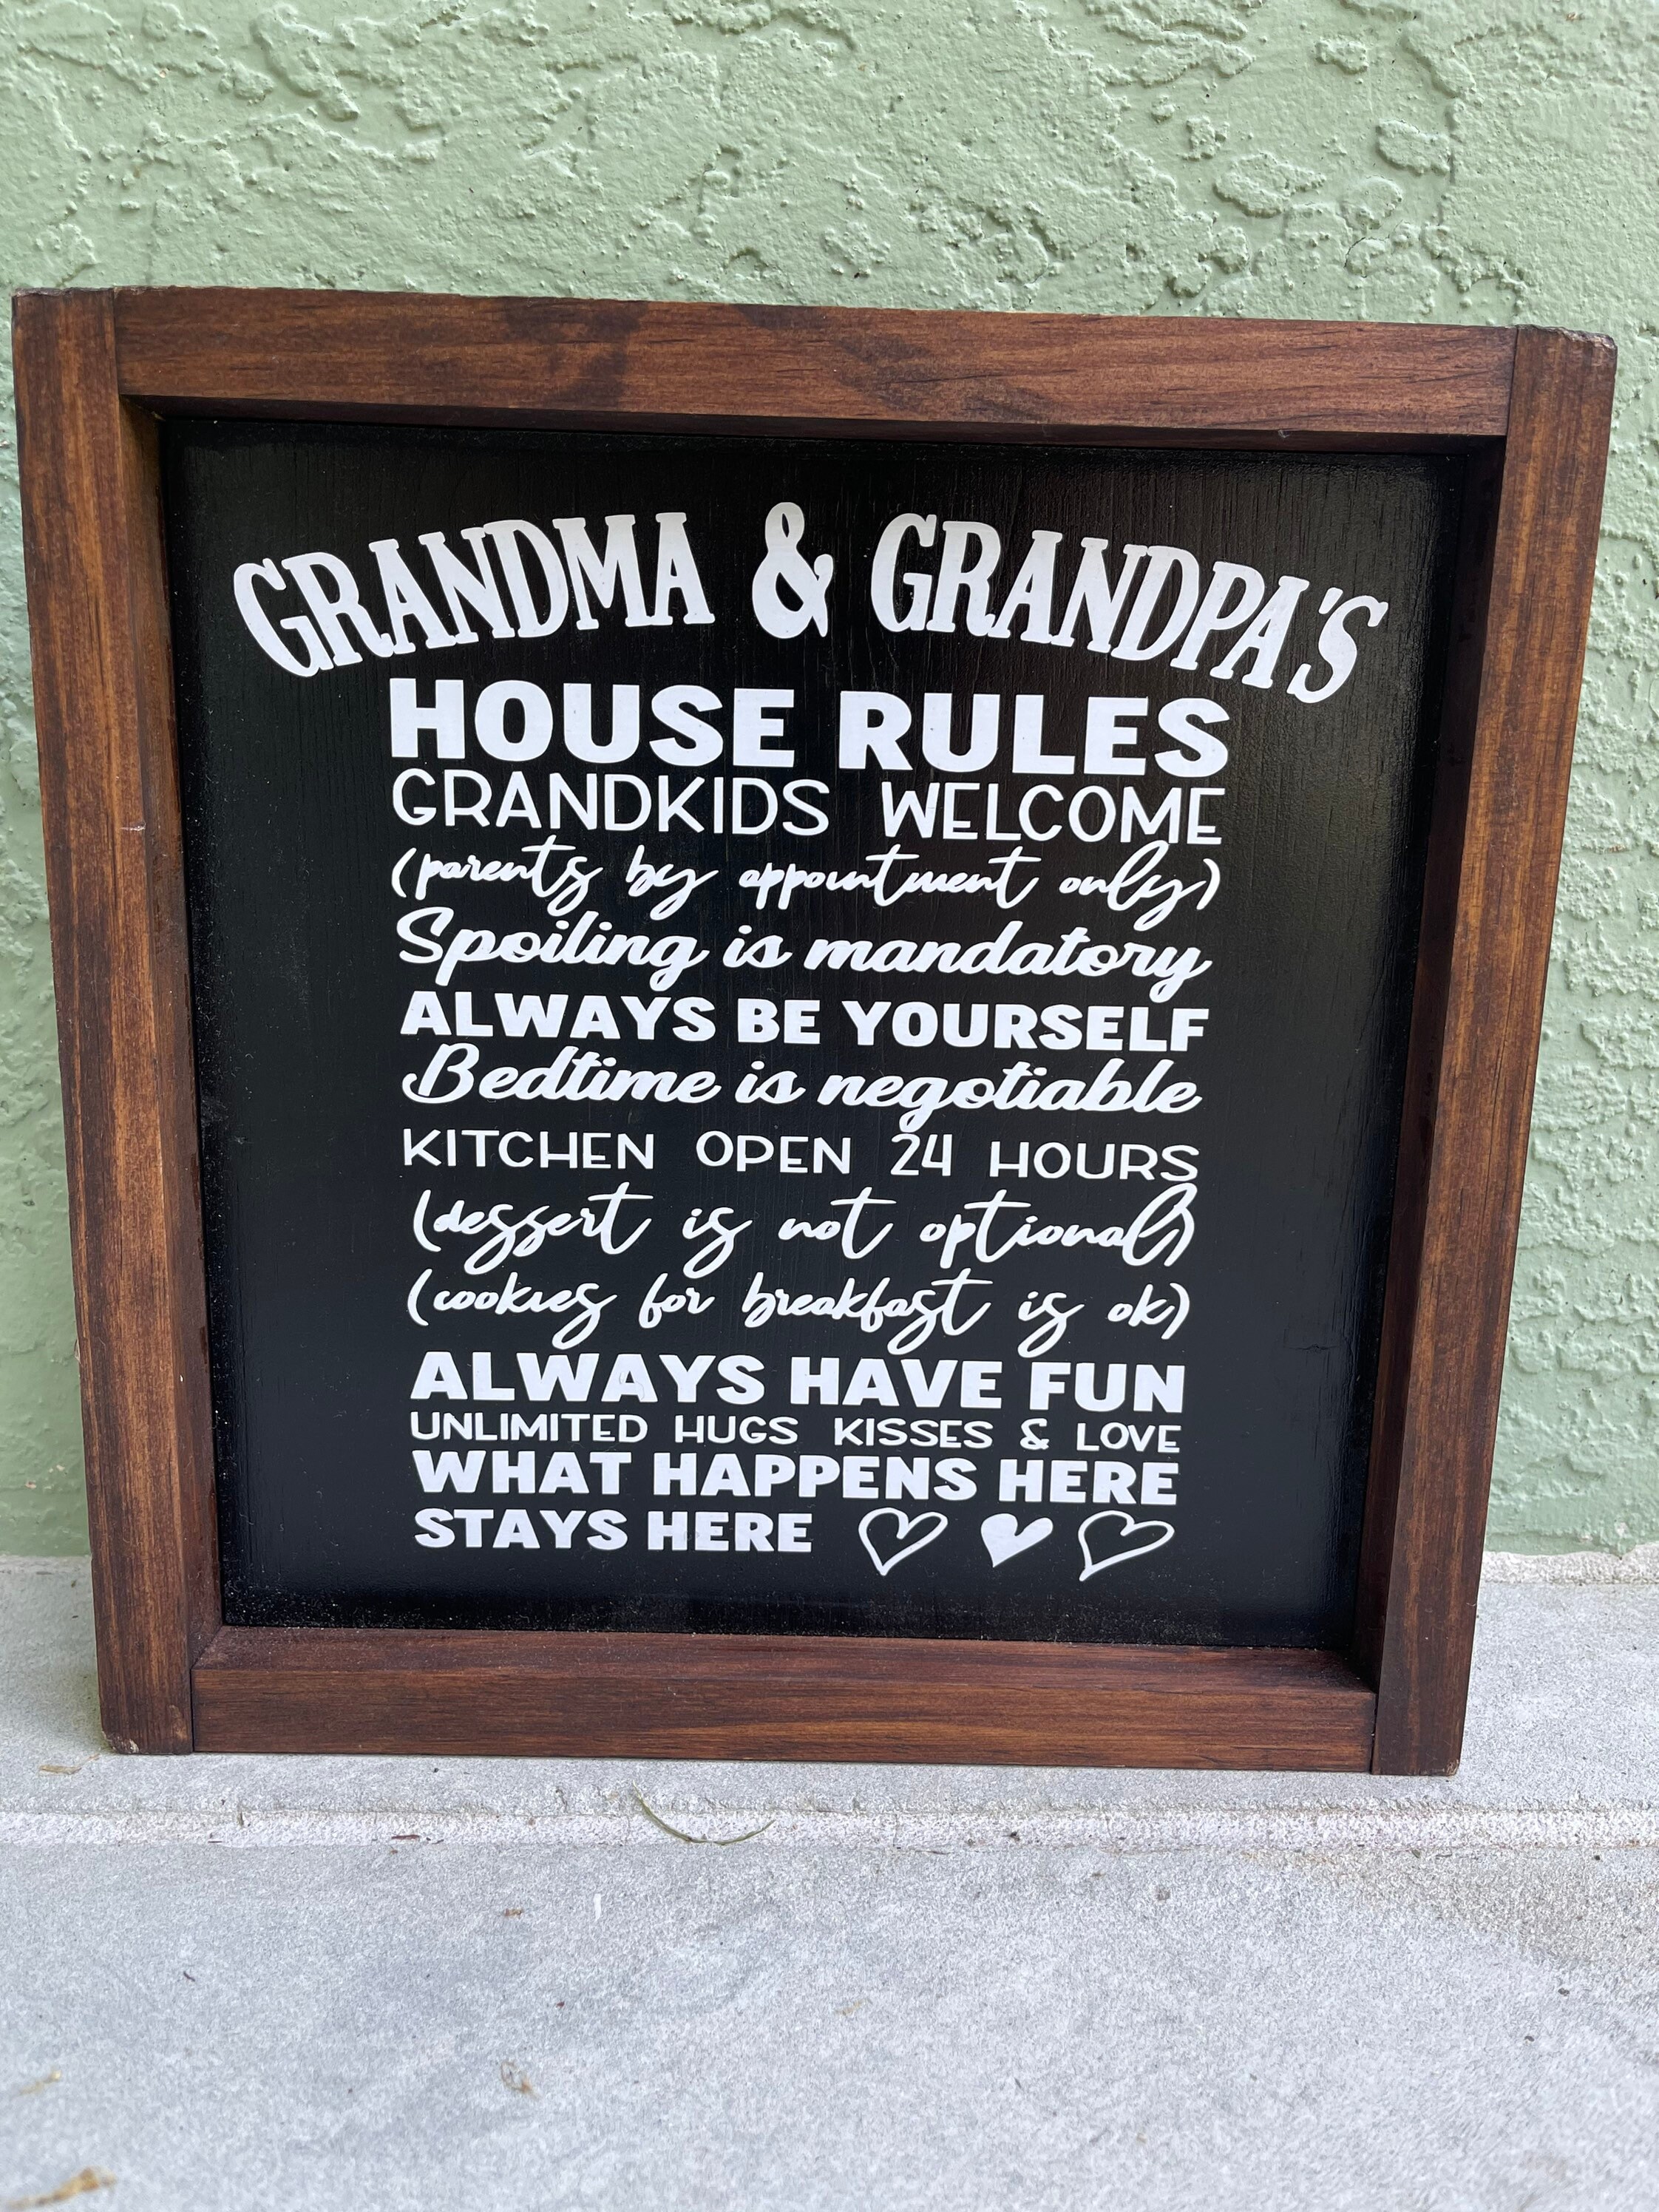 GRANDMA & GRANDPA'S
HOUSE RULES
GRANDKIDS WELCOME
(parents by appointment only)
Spoiling is mandatory
ALWAYS BE YOURSELF
Bedtime is negotiable
KITCHEN OPEN 24 HOURS
(dessert is not optional)
(cookies for breakfast is ok)
ALWAYS HAVE FUN
UNLIMITED HUGS KISSES & LOVE
WHAT HAPPENS HERE
STAYS HERE